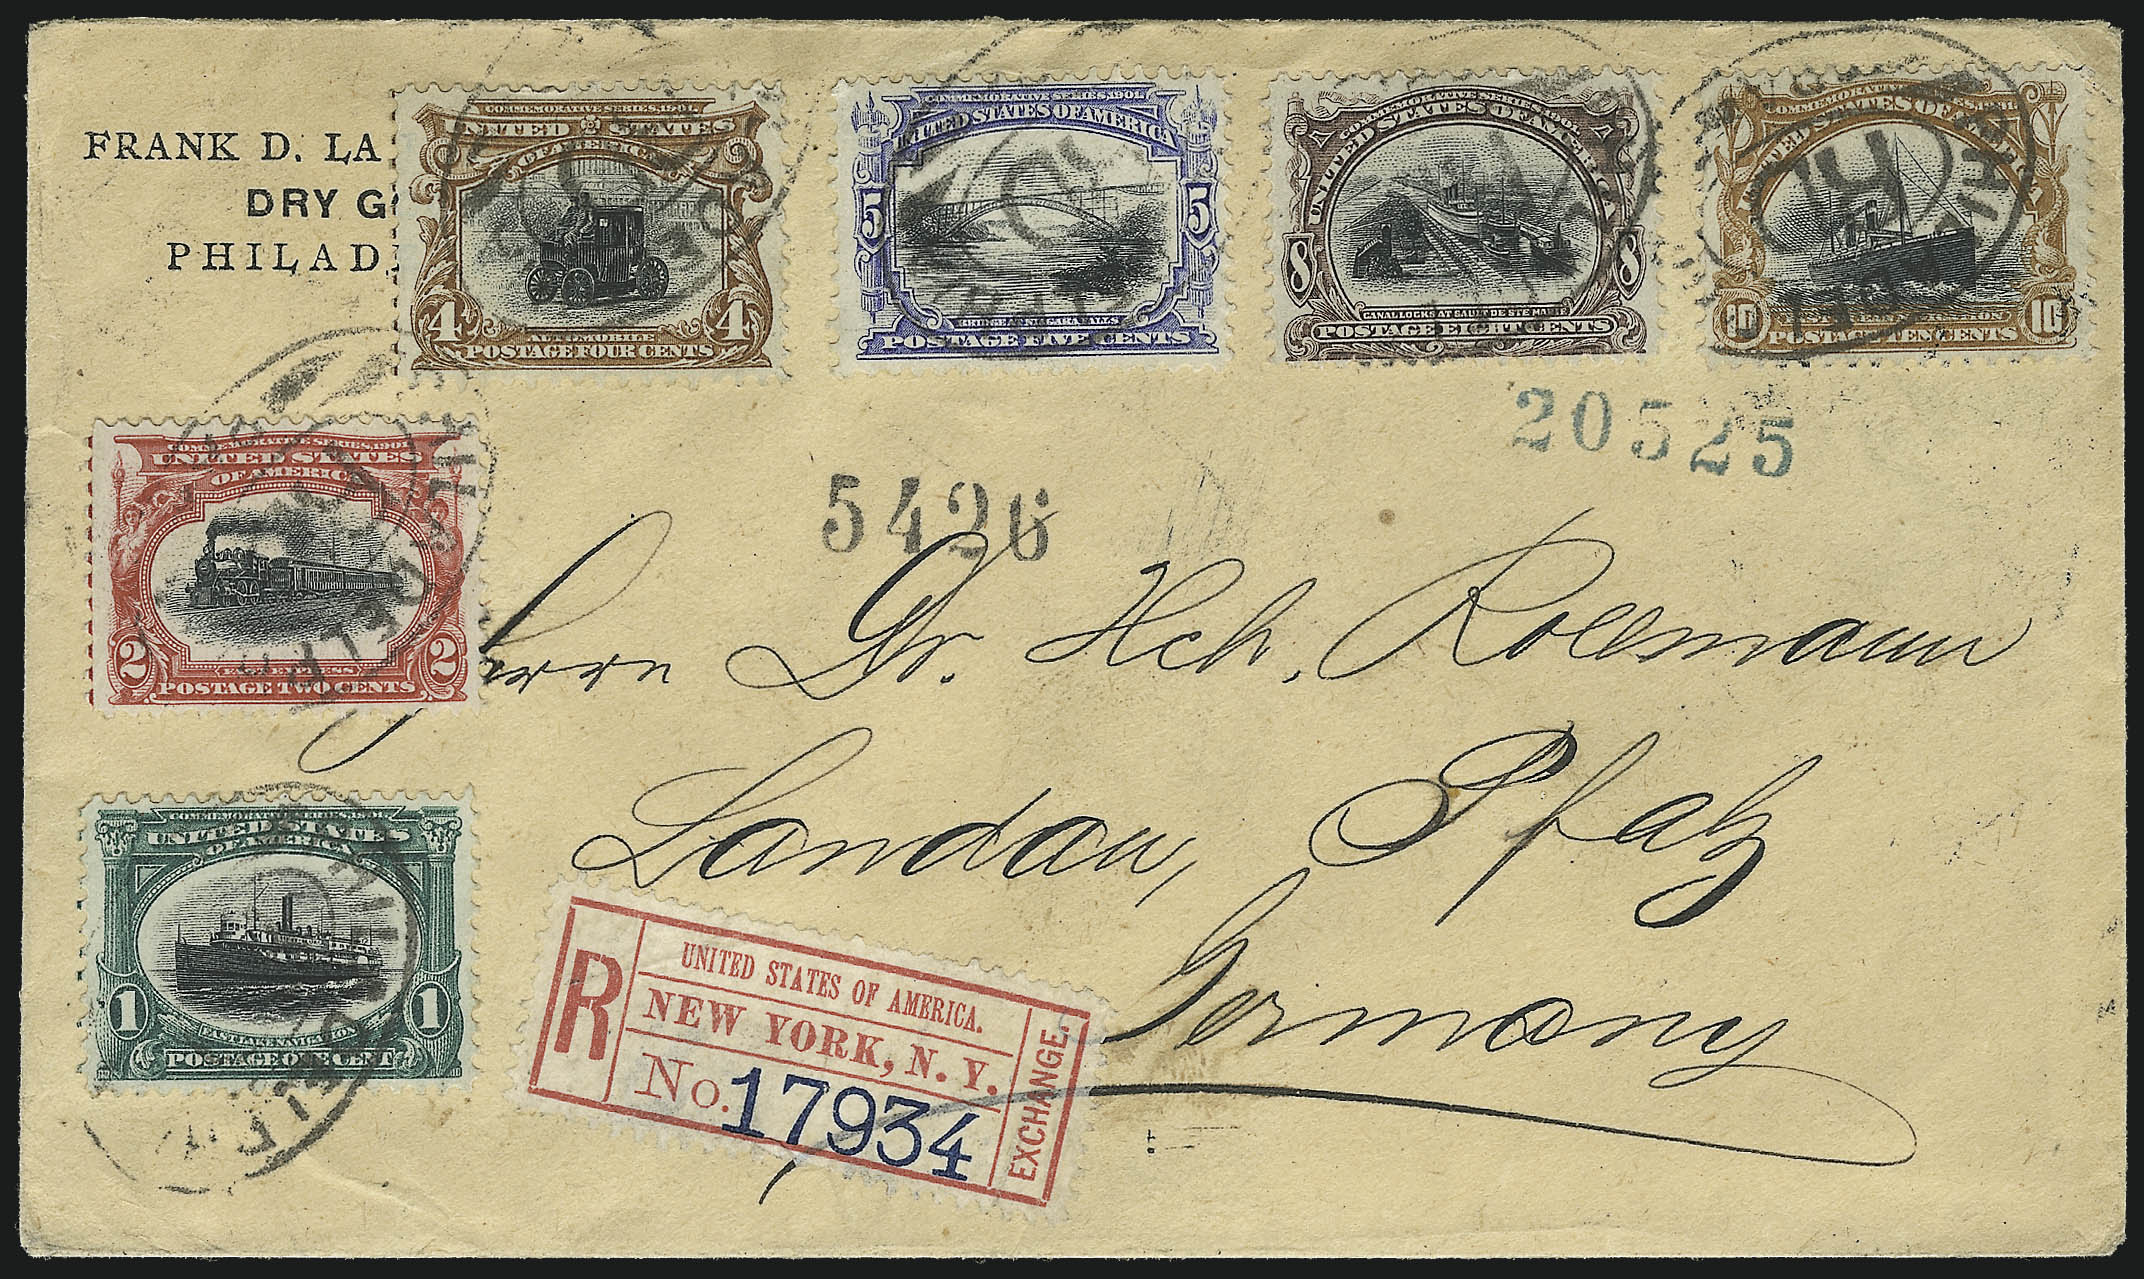 FRANK D. LA
DRY G
PHILAD
COMMEMORATIVE SERIES, 1901.
UNITED STATES
OF AMERICA
4 4
AUTOMOBILE
POSTAGE FOUR CENTS
COMMEMORATIVE SERIES, 1901.
UNITED STATES OF AMERICA
5 5
BRIDGE AT NIAGARA FALLS
POSTAGE FIVE CENTS
COMMEMORATIVE SERIES, 1901.
UNITED STATES OF AMERICA
8 8
CANAL LOCKS AT SAULT DE STE. MARIE
POSTAGE EIGHT CENTS
COMMEMORATIVE SERIES, 1901.
UNITED STATES OF AMERICA
10 10
POSTAGE TEN CENTS
20525
5426
COMMEMORATIVE SERIES, 1901.
UNITED STATES
OF AMERICA
2 2
EXPRESS
POSTAGE TWO CENTS
Herrn Dr. Hch. Rollmann
Landau, Pfalz
Germany
COMMEMORATIVE SERIES, 1901.
UNITED STATES
OF AMERICA
1 1
FAST LAKE NAVIGATION
POSTAGE ONE CENT
R
UNITED STATES OF AMERICA.
NEW YORK, N. Y.
No. 17934
EXCHANGE.